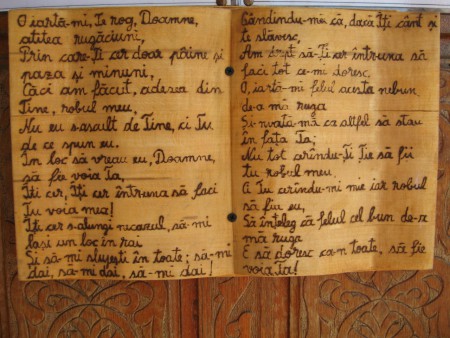 O iartă-mi, Te rog, Doamne,
atîtea rugăciuni,
Prin care-Ți cer doar pîine și
pază și minuni,
Căci am făcut, adesea din
Tine, robul meu,
Nu eu ascult de Tine, ci Tu
de ce spun eu.
În loc să vreau eu, Doamne,
să fie voia Ta,
Îți cer, Îți cer întruna să faci
Tu voia mea!
Îți cer s-alungi necazul, să-mi
lași un loc în rai
Și să-mi slujești în toate; să-mi
dai, să-mi dai, să-mi dai!
Gândindu-mi că, dacă Îți cânt și
te slăvesc,
Am drept să-Ți cer întruna să
faci tot ce-mi doresc.
O, iartă-mi felul acesta nebun
de-a mă ruga
Și-nvață-mă ca altfel să stau
în fața Ta;
Nu tot cerîndu-Ți Ție să fii
tu robul meu,
Ci Tu cerîndu-mi mie iar robul
să fiu eu,
Să înțeleg că felul cel bun de-a
mă ruga
E să doresc ca-n toate, să fie
voia Ta!